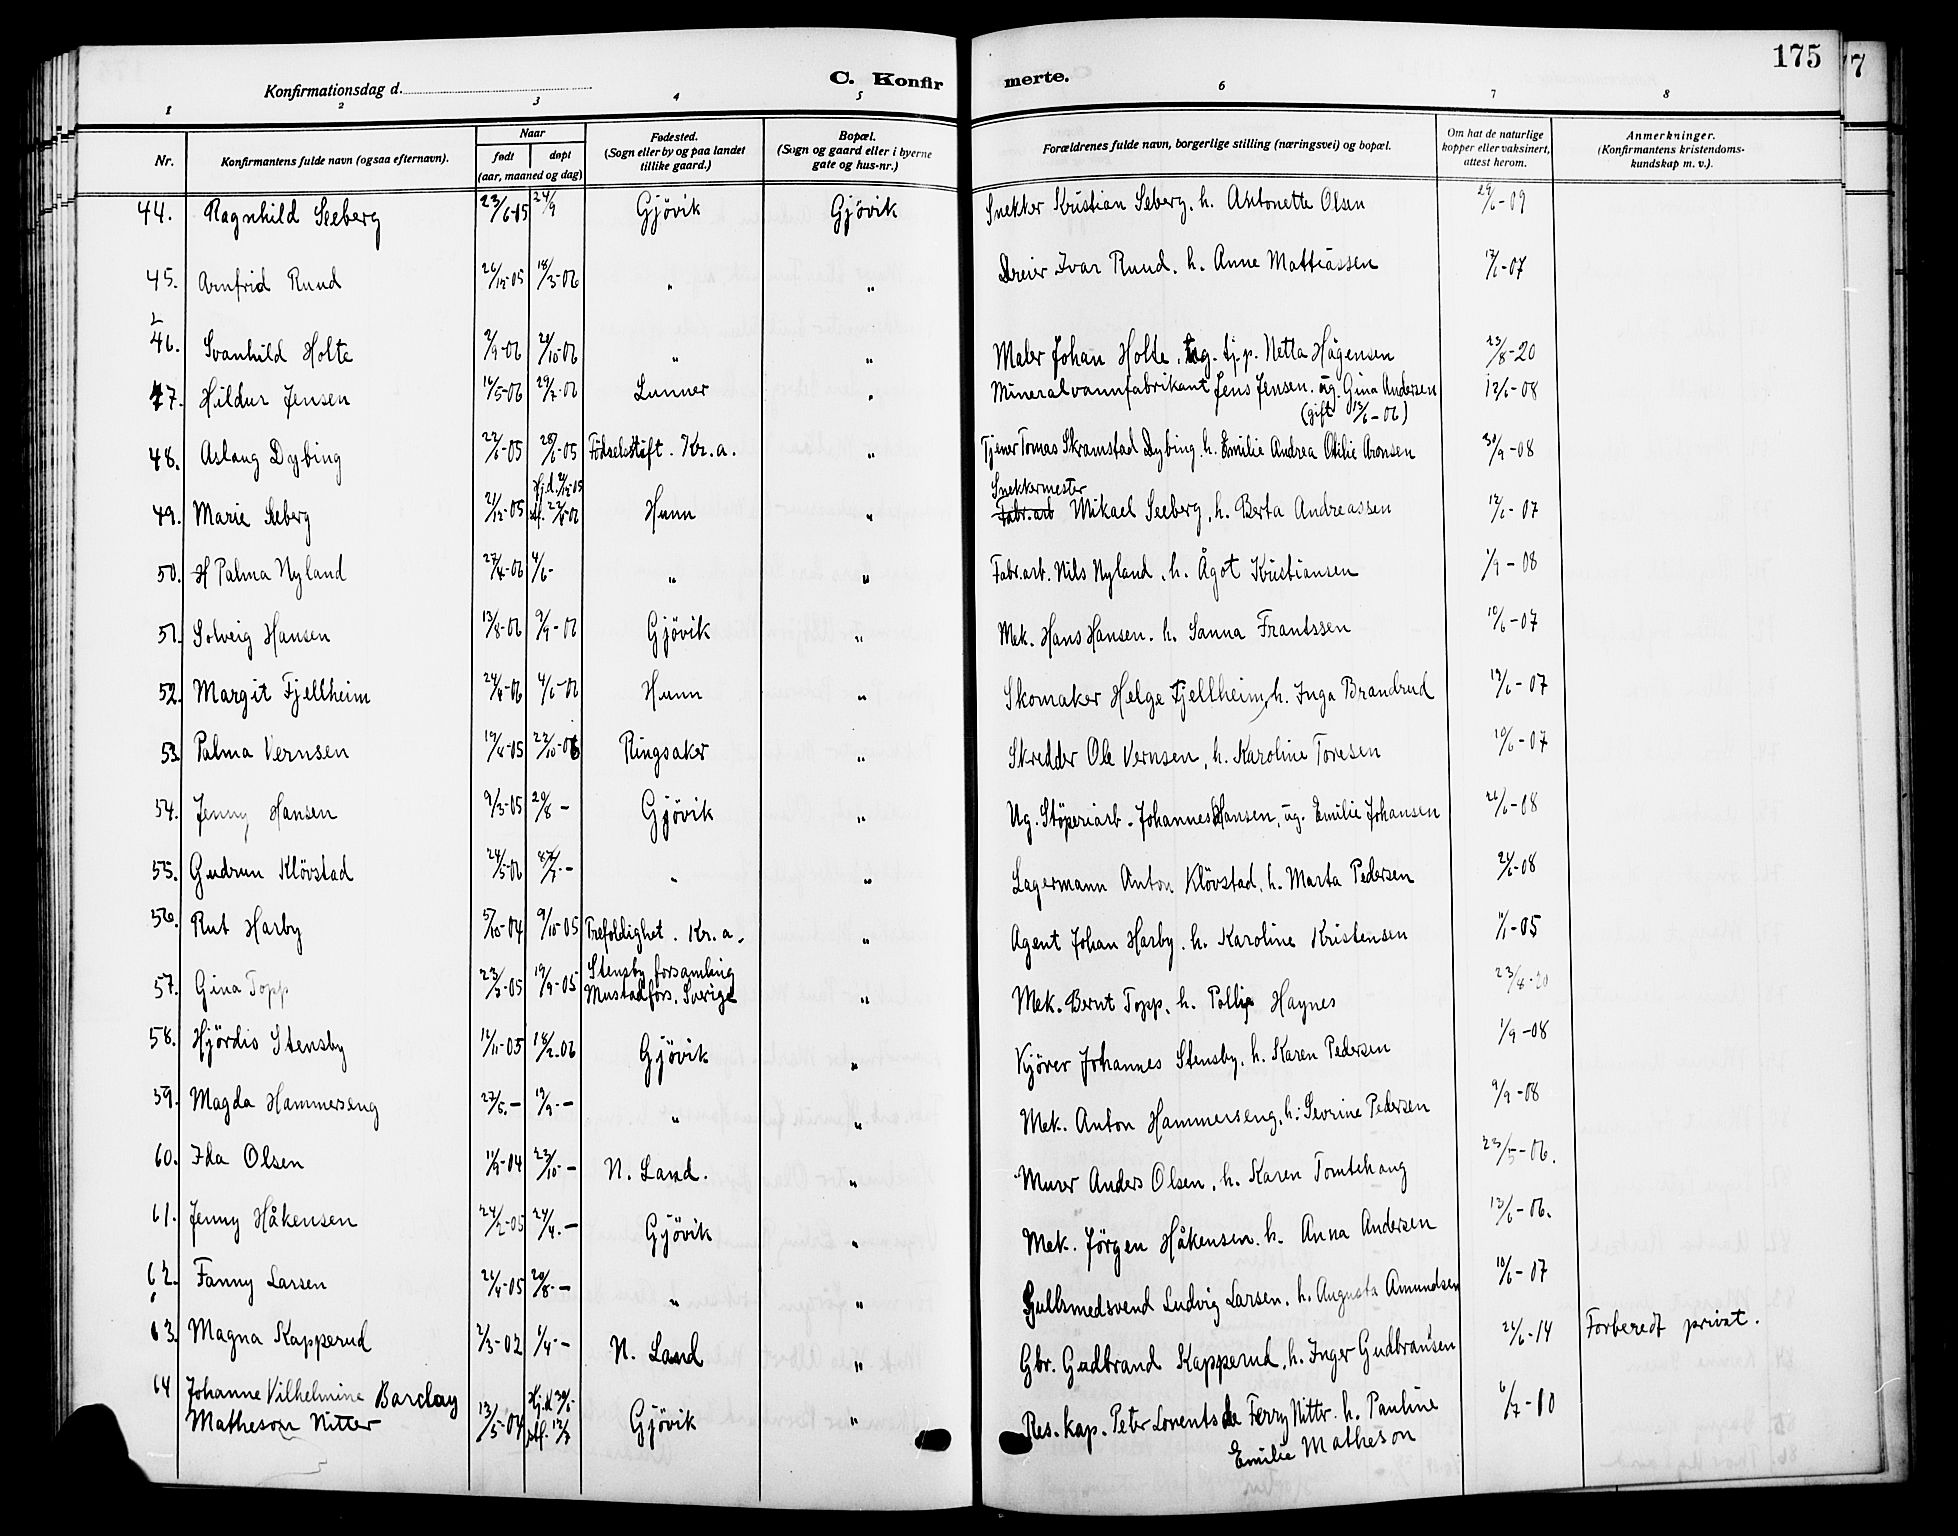 175
77
C. Konfir
merte.
Konfirmationsdag d.
1 2 3 4 5 6 7 8
Nr. Konfirmantens fulde navn (ogsaa efternavn). Naar født døpt (aar, maaned og dag) Fødested. (Sogn eller by og paa landet tillike gaard.) Bopæl. (Sogn og gaard eller i byerne gate og hus-nr.) Forældrenes fulde navn, borgerlige stilling (næringsvei) og bopæl. Om hat de naturlige kopper eller vaksinert, attest herom. Anmerkninger. (Konfirmantens kristendomskundskap m. v.).
44. Ragnhild Seeberg 23/6-05 24/9 Gjövik Gjövik Snekker Kristian Seberg, h. Antonette Olsen 29/6-09
45. Arnfrid Ruud 26/12-05 18/3-06 " " Dreier Ivar Ruud. h. Anne Mattiassen 17/6-07
46. Svanhild Holte 2/9-06 21/10-06 " " Maler Johan Holte, ug. tj.p. Netta Hågensen 23/8-20
47. Hildur Jensen 16/5-06 29/7-06 Lunner " Mineralvannfabrikant Jens Jensen. ug. Gina Andersen 12/6-08
(gift 13/6-06)
48. Aslaug Dybing 22/6-05 28/6-05 Födselsstift. Kr.a. " Tjener Tomas Skramstad Dybing. h. Emilie Andrea Otilie Aronsen 30/9-08
49. Marie Seeberg 21/12-05 Hj.d. 21/12-05 stf. 22/6-06 Hunn " Snekkermester Fabr.arb Mikael Seeberg, h. Berta Andreassen 12/6-07
50. H Palma Nyland 27/4-06 4/6- " " Fabr.arb. Nils Nyland, h. Ågot Kristiansen 1/9-08
51. Solveig Hansen 13/8-06 9/9-06 Gjövik " Mek. Hans Hansen. h. Sanna Frantssen 10/6-07
52. Margit Fjellheim 24/4-06 4/6-06 Hunn " Skomaker Helge Fjellheim, h. Inga Brandrud 19/6-07
53. Palma Vernsen 19/4-05 22/10-06 Ringsaker " Skredder Ole Vernsen, h. Karoline Toresen 10/6-07
54. Jenny Hansen 9/3-05 20/8 - Gjövik " Ug. Stöperiarb. Johannes Hansen, ug. Emilie Johansen 26/6-08
55. Gudrun Klövstad 24/5-06 - " " Lagermann Anton Klövstad, h. Marta Pedersen 24/6-08
56. Rut Harby 5/10-04 9/10-05 Trefoldighet. Kr.a. " Agent Johan Harby. h. Karoline Kristensen 11/1-05
57. Gina Topp 23/7-05 19/9-05 Stensby forsamling Mustadfors. Sverige " Mek. Bernt Topp, h. Pollie Haynes 23/8-20
58. Hjördis Stensby 16/11-05 18/2-06 Gjövik " Kjörer Johannes Stensby, h. Karen Pedersen 1/9-08
59. Magda Hammerseng 27/5. - 19/9. - " " Mek. Anton Hammerseng, h: Sevrine Pedersen 9/9-08
60. Ida Olsen 11/9-04 23/10 - N. Land. " Murer Anders Olsen, h. Karen Tomtehaug 23/5-06.
61. Jenny Håkensen 24/2-05 24/4. - Gjövik " Mek. Jörgen Håkensen. h. Anna Andersen 13/6-06.
62. Fanny Larsen 26/4-05 20/8. - " " Gullsmedsvend Ludvig Larsen, h. Augusta Amundsen 18/6-07
63. Magna Kapperud 2/3-02 1/4 - N. Land " Gbr. Gudbrand Kapperud, h. Inger Gudbransen 26/6-14 Forberedt privat.
64 Johanne Vilhelmine Barclay
Matheson Nitter 13/5-04 Hj.d 30/5- stf. 13/7 Gjövik " Res. kap. Peter Lorents de Ferry Nitter. h. Pauline 6/7-10
Emilie Matheson